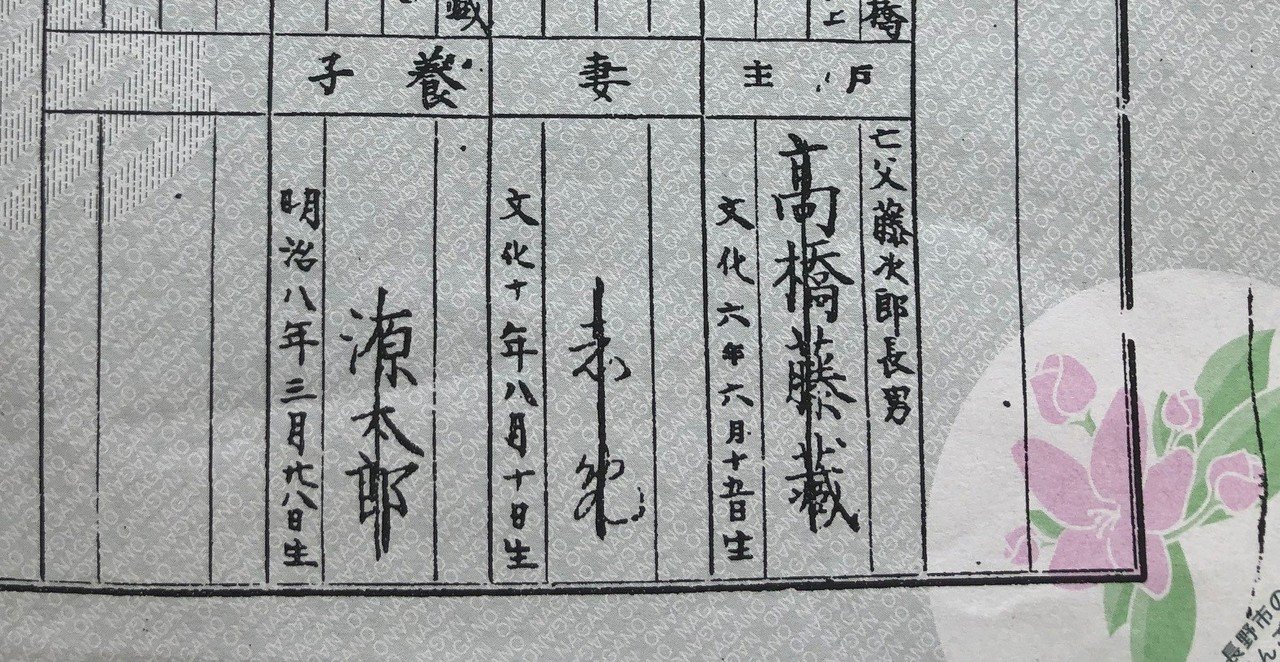 橋
上
戸主
亡父藤次郎長男
高橋藤藏
文化六年六月十五日生
妻
文化十年八月十日生
藏
養子
源太郎
明治八年三月廿八日生
長野市の
NAGANO